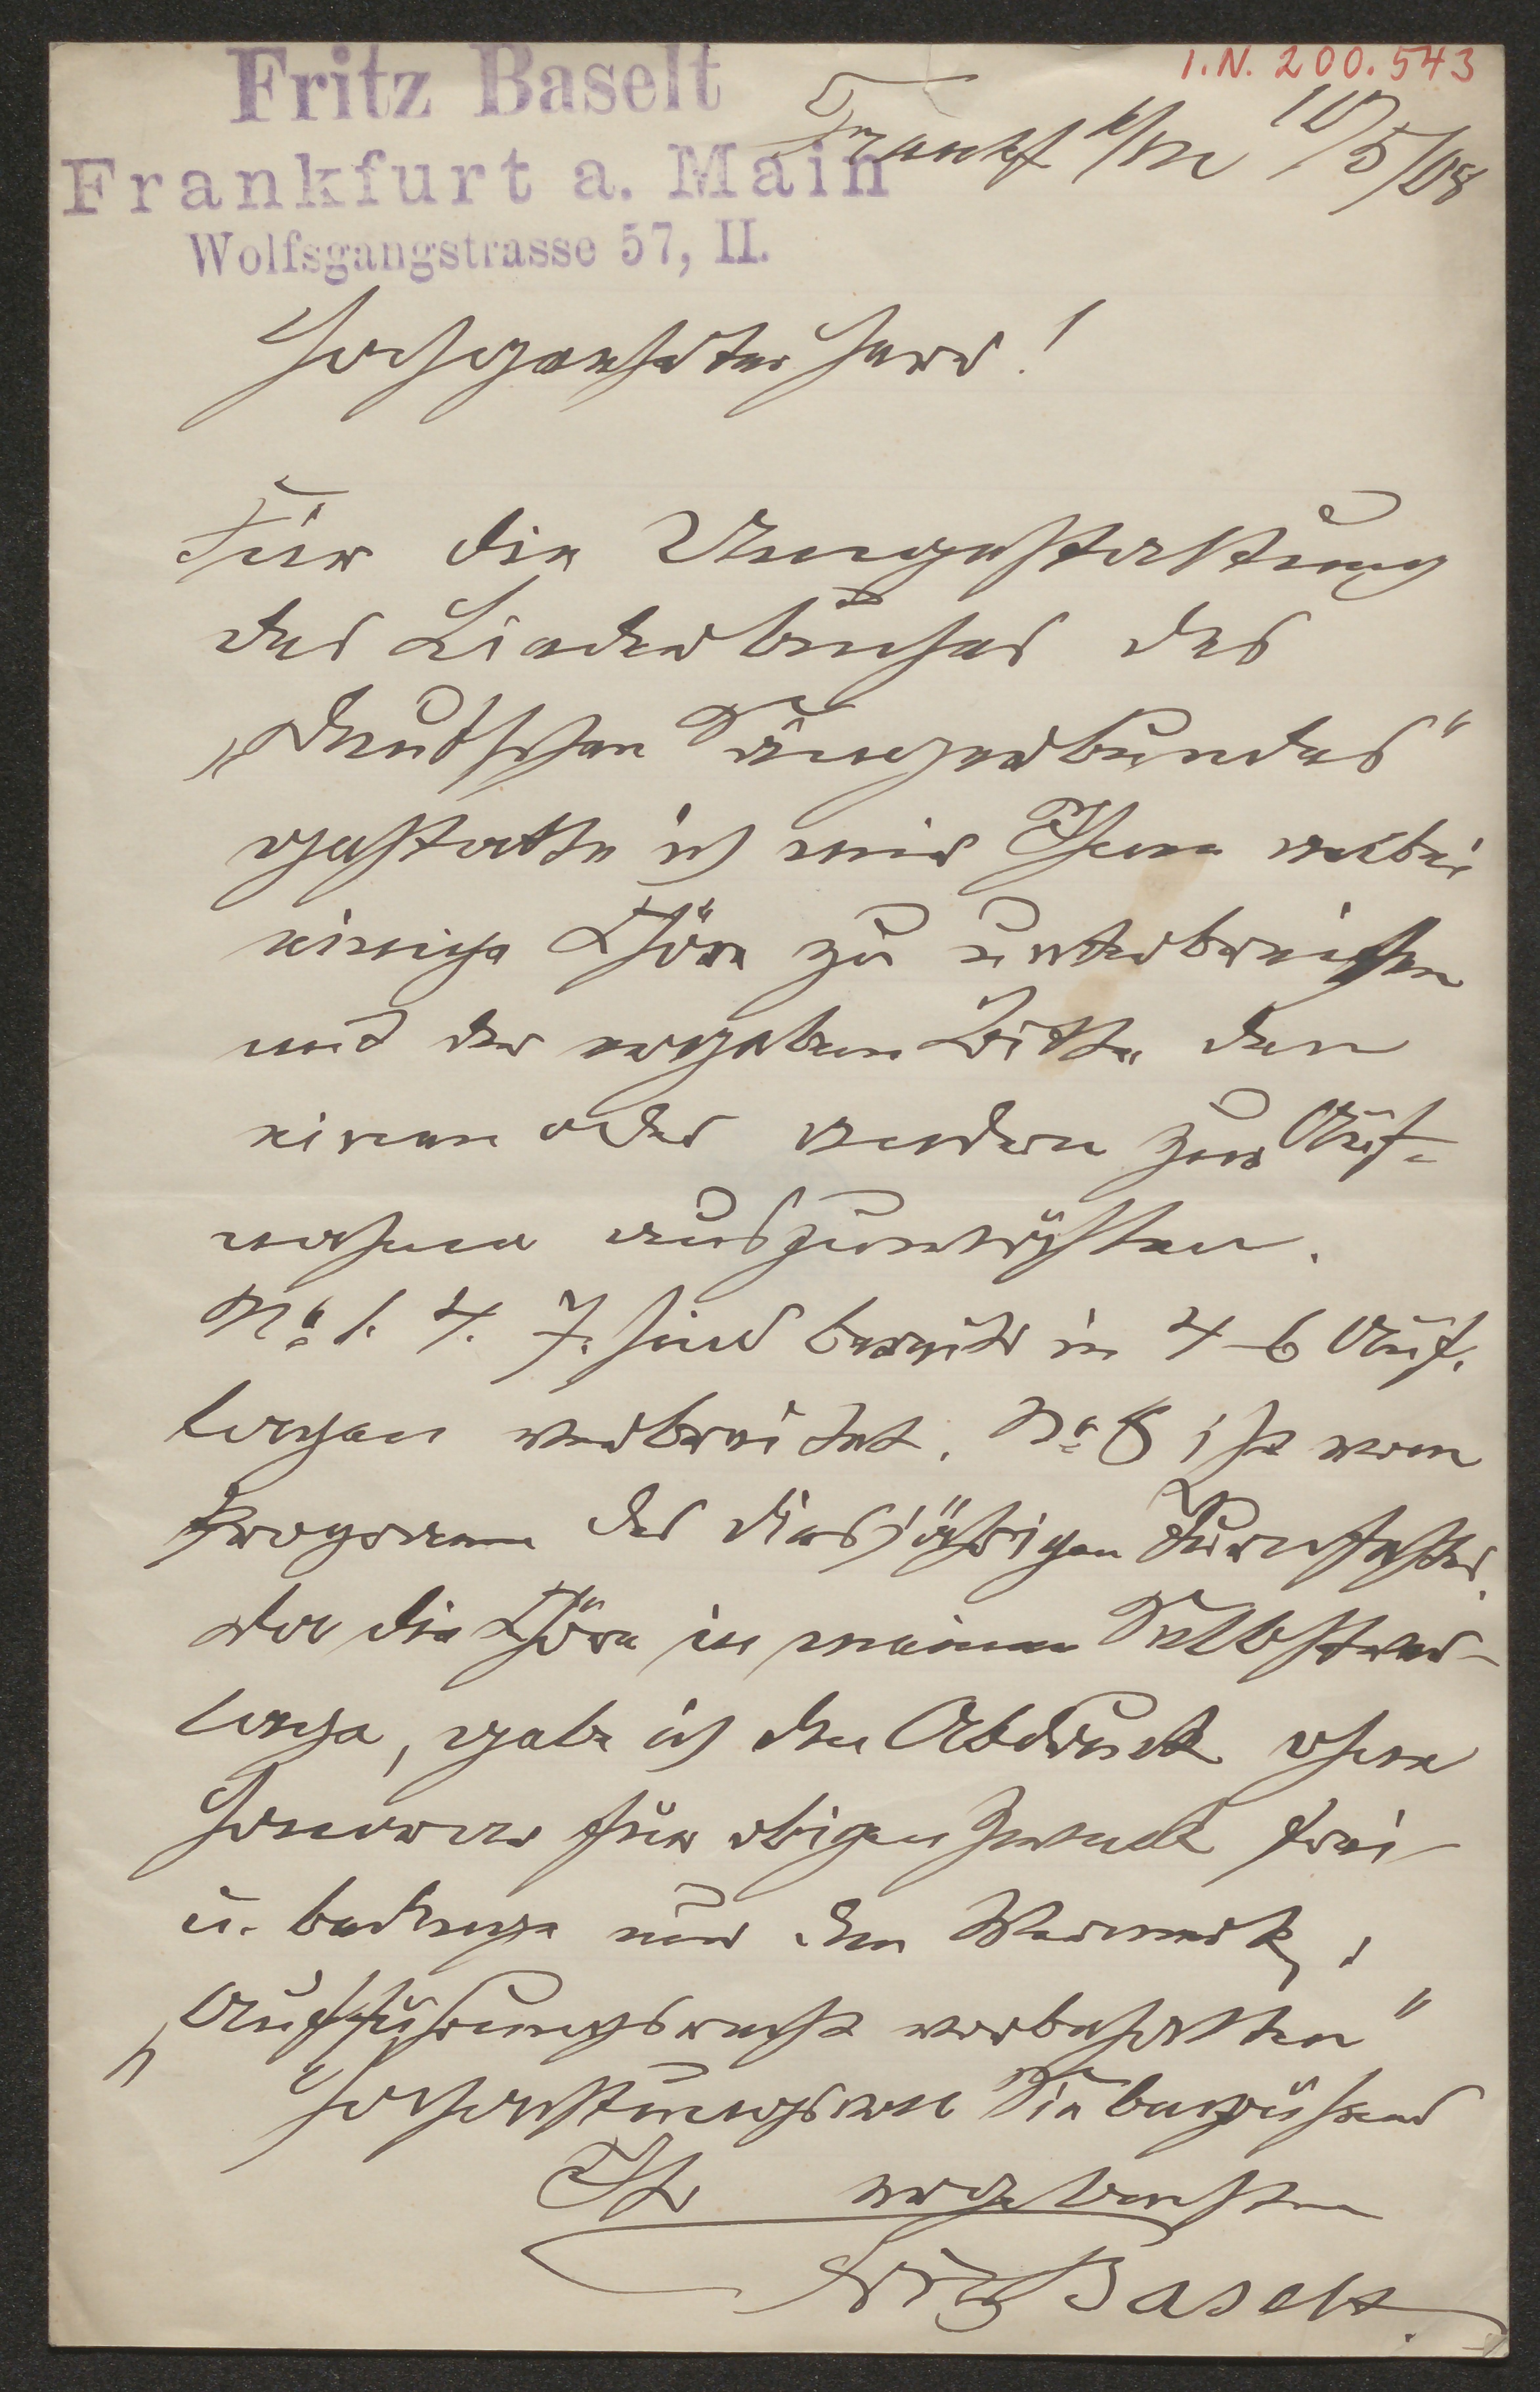 Fritz Baselt
Frankfurt a. Main
Wolfsgangstrasse 57, II.
I.N. 200.543
Frankf a/M 10/5/08
Hochgeehrter Herr!
Für die Umgestaltung
des Liederbuches des
„Deutschen Sängerbundes"
gestatte ich mir Ihnen anbei
einige Chöre zu unterbreiten
mit der ergebenen Bitte den
einen oder andern zur Auf-
nahme auszuwählen.
No 1. 4. 7. sind bereits in 4–6 Auf-
lagen verbreitet. No 8 ist vom
Programm des diesjährigen Turnfestes.
Da die Chöre in meinem Selbstver-
lage, gebe ich den Abdruck ohne
Honorar für obigen Zweck frei
u. bedinge nur den Vermerk:
„Aufführungsrecht vorbehalten"
Hochachtungsvoll Sie begrüßend
Ihr ergebenster
Fritz Baselt.